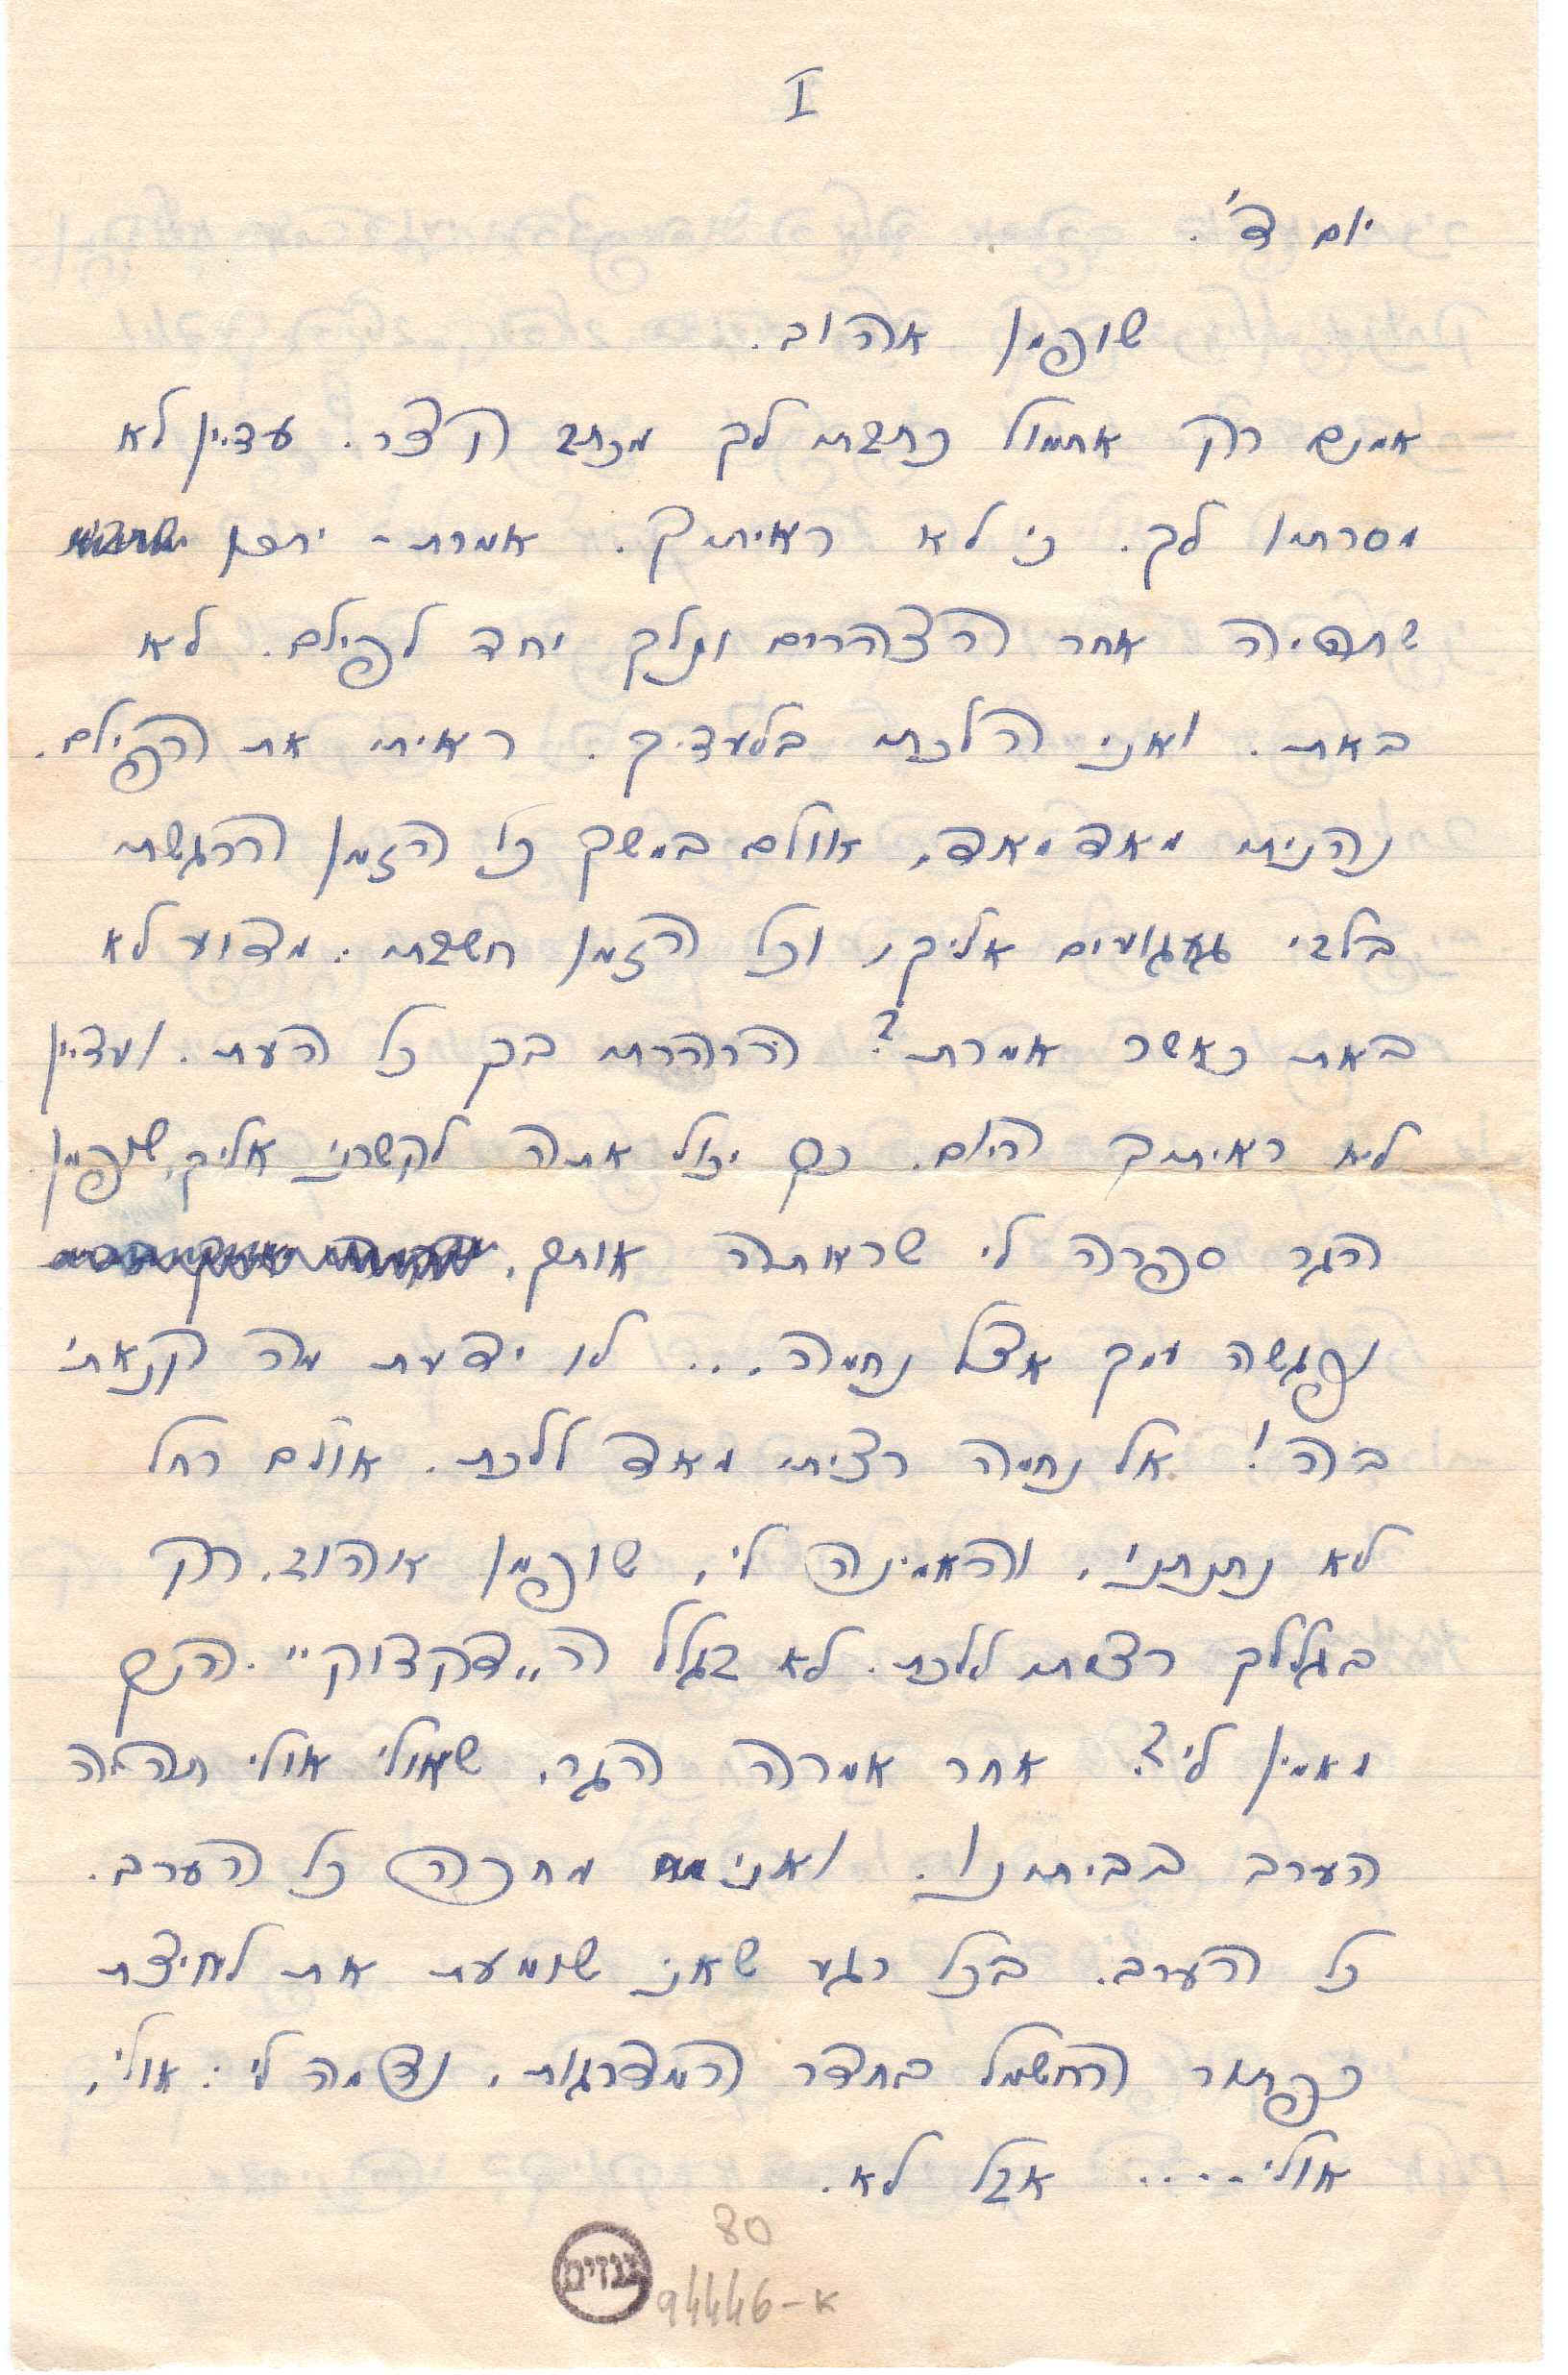 I
יום ד'.
שופמן אהוב.
אמנם רק אתמול כתבתי לך מכתב קצר. עדיין לא
מסרתיו לך. כי לא ראיתיך. אמרת - יתכן
שתהיה אחר הצהרים ונלך יחד לפילם. לא
באת. ואני הלכתי בלעדיך. ראיתי את הפילם.
נהניתי מאד מאד, אולם במשך כל הזמן הרגשתי
בלבי געגועים אליך, וכל הזמן חשבתי: מדוע לא
באת כאשר אמרת? הרהרתי בך כל העת. ועדיין
לא ראיתיך היום. כך יכול אתה לקשרני אליך, שופמן.
הגר ספרה לי שראתה אותך,
נפגשה עמך אצל נחמה... לו ידעת מה קנאתי
בה! אל נחמה רציתי מאד ללכת. אולם רחל
לא נתנתני, והאמינה לי, שופמן אהוב, רק
בגללך רציתי ללכת. לא בגלל ה"דקדוק". הנך
מאמין לי? אחר אמרה הגר, שאולי אולי תהיה
הערב בביתנו. ואני מחכה כל הערב.
כל הערב. בכל רגע שאני שומעת את לחיצת
כפתור החשמל בחדר המדרגות, נדמה לי: אולי,
אולי..... אבל לא.
80
גנזים
94446-א